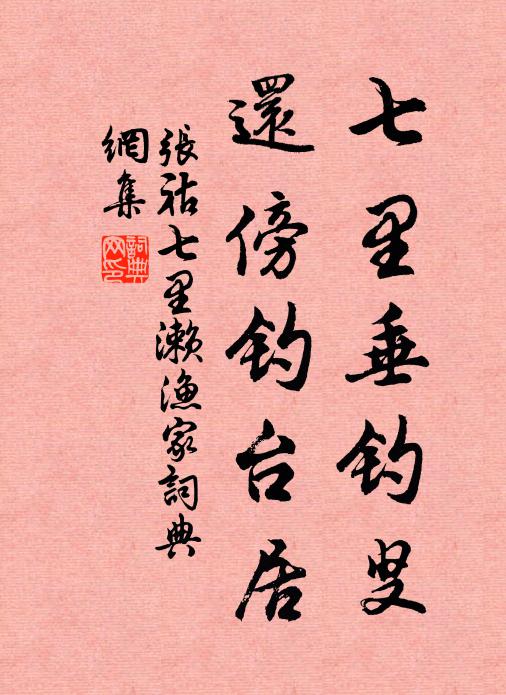 七里垂钓叟
還傍钓台居
張祜七里濑漁家詞典
網集
詞典
网印